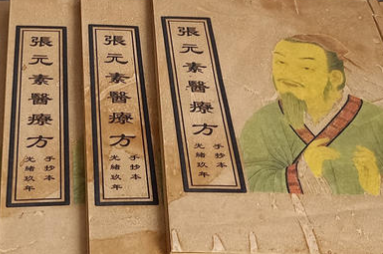 張元素醫療方
手抄本
光緒玖年
張元素醫療方
手抄本
光緒玖年
張元素醫療方
手抄本
光緒玖年